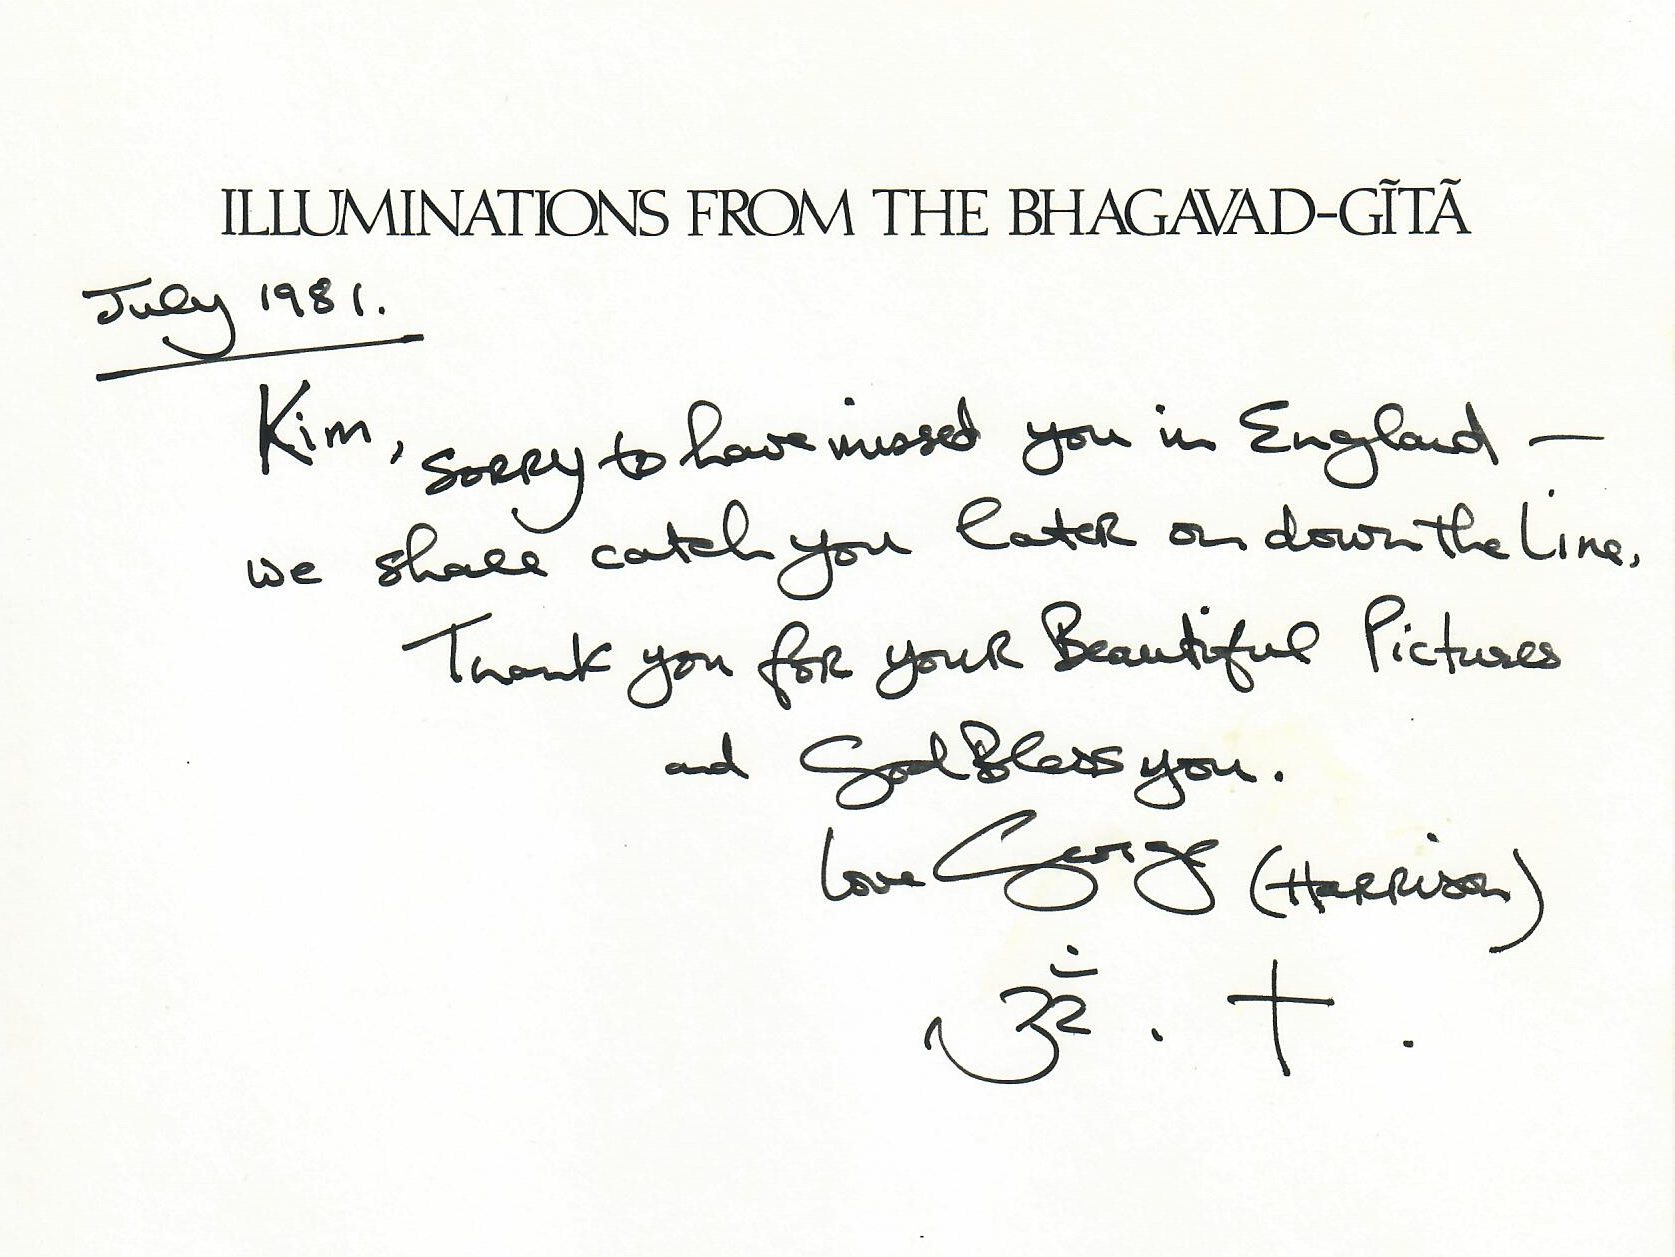 ILLUMINATIONS FROM THE BHAGAVAD-GĨTÃ
July 1981.
Kim, sorry to have missed you in England —
we shall catch you later on down the Line,
Thank you for your Beautiful Pictures
and God Bless you.
Love George (Harrison)
ॐ . † .